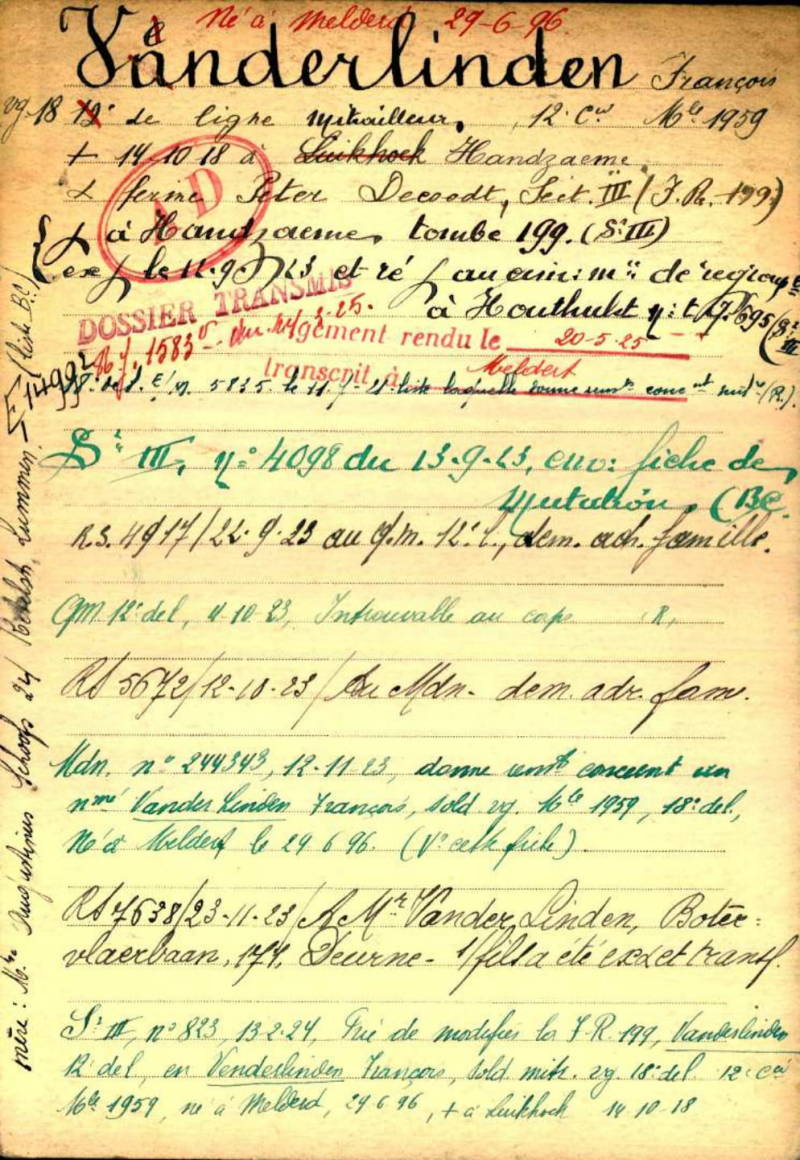 Né à Meldert 29-6-96.
Vanderlinden François
vg. 18 12e de ligne mitrailleur, 12e Cie Mle 1959
+ 14-10 18 à Luikhoek Handzaeme
ferme Peter Decoodt, Sect. III (F.R. 199)
AD
à Handzaeme, tombe 199. (S. III)
ex le 12.9 23 et ré au cim: mre de regroupt
à Houthulst
DOSSIER TRANSMIS
1583 du 3-25.
Jugement rendu le 20-5-25
transcrit à Meldert
5835 le laquelle donne
Sn III, no 4098 du 13.9.23, env: fiche de
Mutation. (BC.
R.S. 4917/22.9.23 au Q.M. 12e l., dem. adr. famille.
QM 12e del, 4 10 23, Introuvable au corps R,
RS 5672/12-10-23/Au Mdn- dem. adr. fam.
Mdn. no 244343, 12-11 23, donne renst concernt un
nmé Vander Linden François, sold vg. Mle 1959, 18e del,
Né à Meldert le 29 6 96. (Vr cette fiche).
RS 7638/23-11-23/A Mr Vander Linden, Boter=
vlaerbaan, 174, Deurne- s/fils a été ex et transf.
Sn III, no 823, 13 2 24, Prié de modifier la F.R. 199, Vanderlinden
12 del, en Venderlinden François, sold. mitr. vg. 18e del 12e Cie
Mle 1959, né à Melderd, 29 6 96, + à Luikhoek 14 10-18
mère: Augustinus Schoofs 24 Lummen.
1499 (liste B.C.)